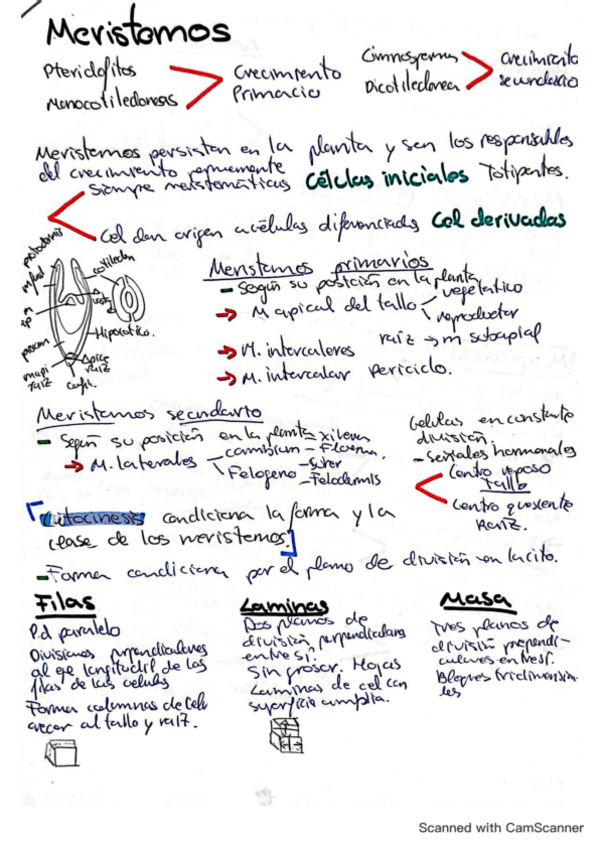 Meristemos
Pteridofitos
Monocotiledoneas
Crecimiento
Primario
Gimnosperma
Dicotiledonea
crecimiento
secundario
Meristemos persisten en la planta y son los responsables
del crecimiento
siempre meristemáticas Células iniciales Totipotentes.
Cel dan origen a células diferenciadas Cel derivadas
cotiledon
Hipocotilo.
Apice
raiz
raiz
Meristemos primarios
- Según su posición en la planta
→ M apical del tallo
vegetatico
reproductor
raíz → m subapial
→ M. intercaleres
→ M. intercalar periciclo.
Meristemos secundario
- Según su posición en la planta
→ M. laterales
cambium - xilema
- Floema
Felogeno - suber
- Felodermis
Celulas en constante
división
- señales hormonales
Centro reposo
tallo
Centro quiescente
Raiz.
Citocinesis condiciona la forma y la
clase de los meristemos.
- Forma condiciona por el plano de división en la cito.
Filas
P.d paralelo
Divisiones perpendiculares
al eje longitudil de las
filas de las celulas
Forma columnas de Cels
crecer al tallo y raiz.
Laminas
Dos planos de
división perpendiculares
entre sí.
Sin grosor. Hojas
Laminas de cel con
superficie amplia.
Masa
Tres planos de
división prependi-
culares entresi.
Bloques tridimensiona-
les
Scanned with CamScanner